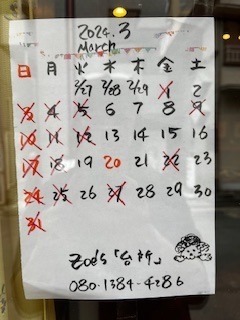 2024.3
March
日 月 火 水 木 金 土
2/27 2/28 2/29 1 2
3 4 5 6 7 8 9
10 11 12 13 14 15 16
17 18 19 20 21 22 23
24 25 26 27 28 29 30
31
Zoe's「台所」
080-1384-4286